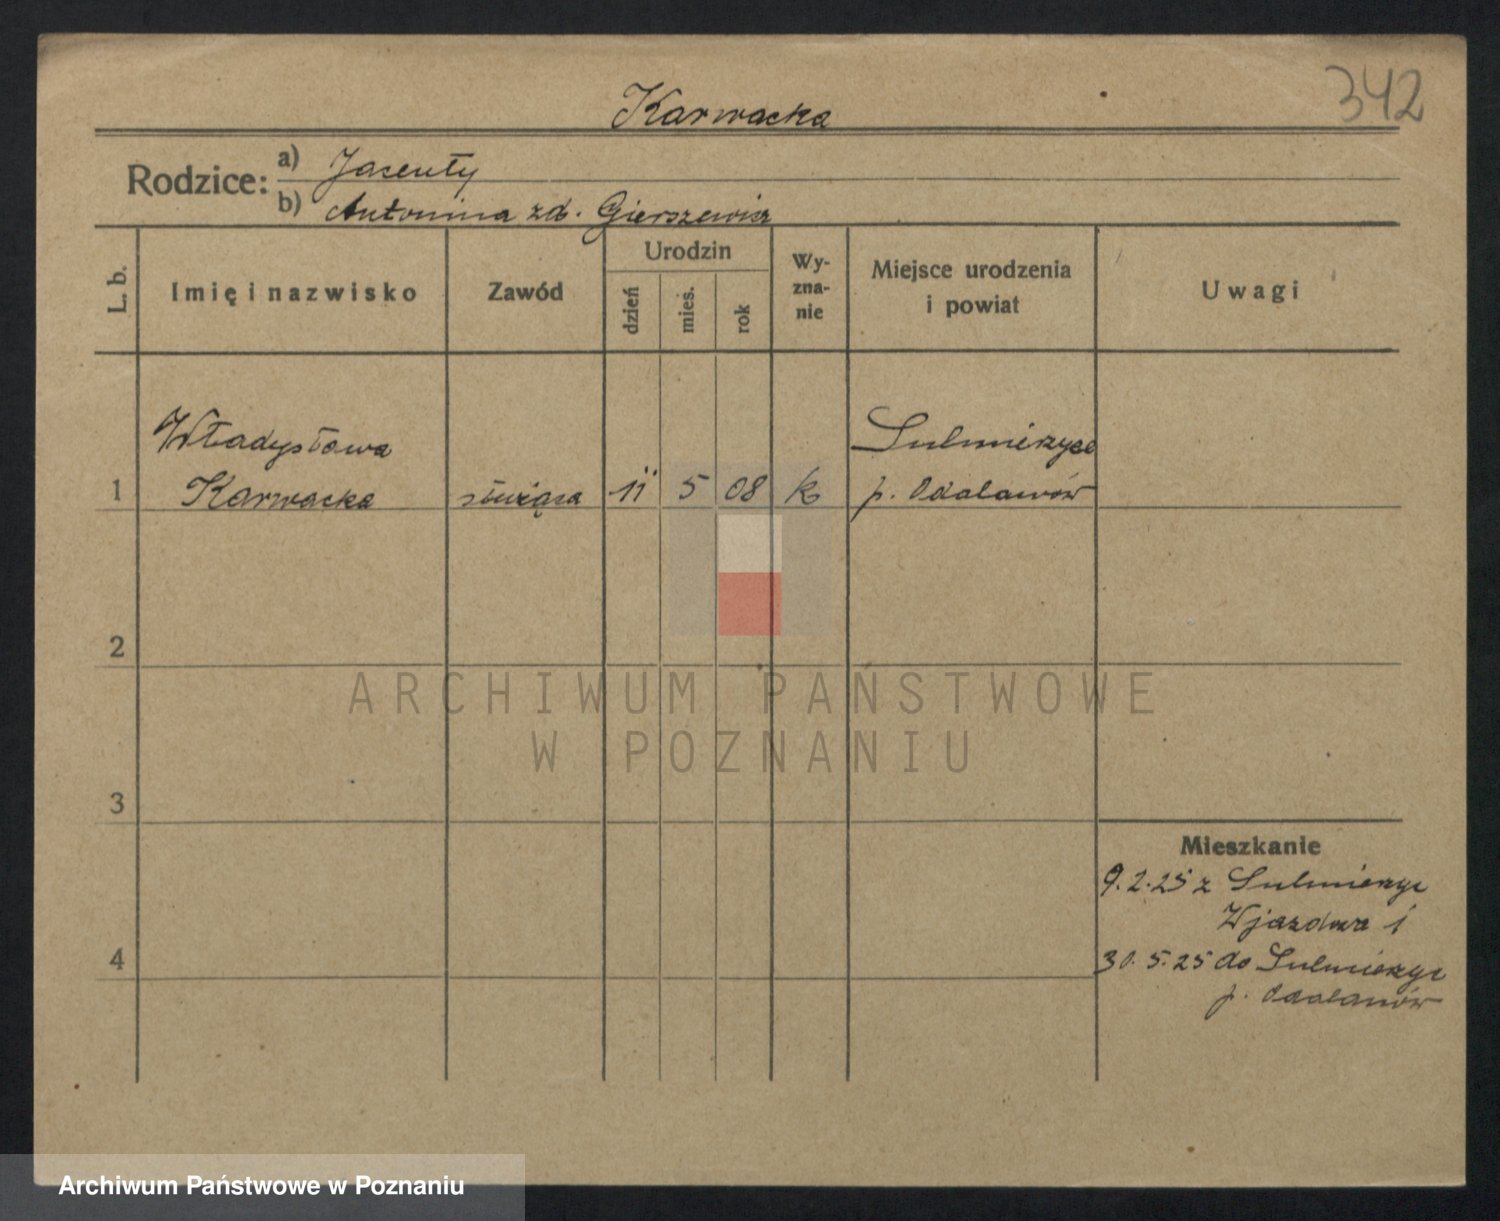 342
Karwacka
Rodzice:
a) Jacenty
b) Antonina zd. Gierszewisz
L. b.
Imię i nazwisko
Zawód
Urodzin
dzień
mies.
rok
Wy-
zna-
nie
Miejsce urodzenia
i powiat
Uwagi
Władysława
Karwacka
1
służąca
11
5
08
k
Sulmierzyce
p. Odalanów
2
3
4
Mieszkanie
9.2.25 z Sulmierzyc
Wjazdowa 1
30.5.25 do Sulmierzyc
p. Odalanów
ARCHIWUM PAŃSTWOWE
W POZNANIU
Archiwum Państwowe w Poznaniu